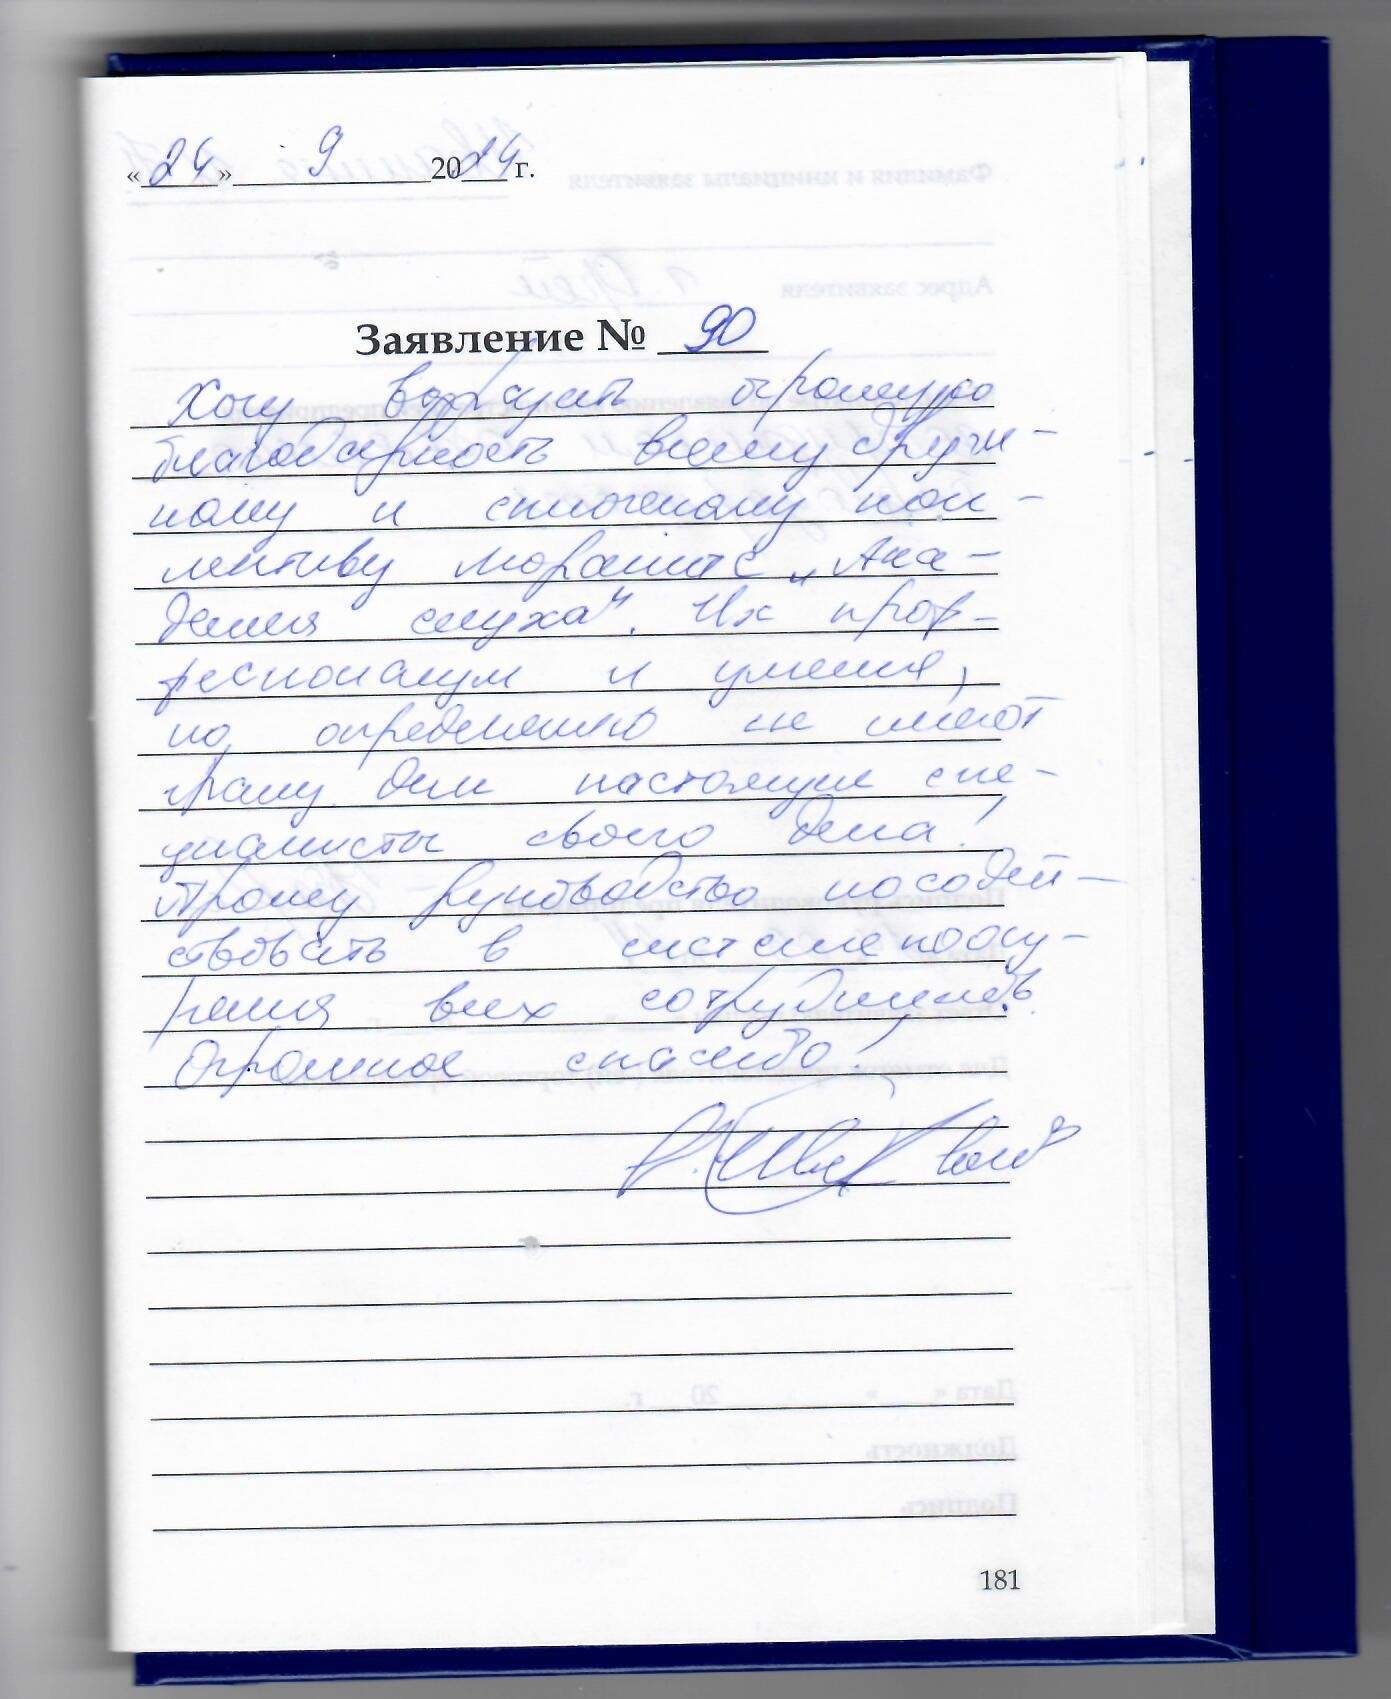 «24» 9 2024 г.
Заявление № 90
Хочу выразить огромную
благодарность всему друж-
ному и сплоченному кол-
лективу "Ака-
демия слуха". Их проф-
фесионализм и умения,
по определению не имеют
границ. Они настоящие спе-
циалисты своего дела!
Прошу руководство посодей-
ствовать в системе поощ-
рения всех сотрудников.
Огромное спасибо!
181